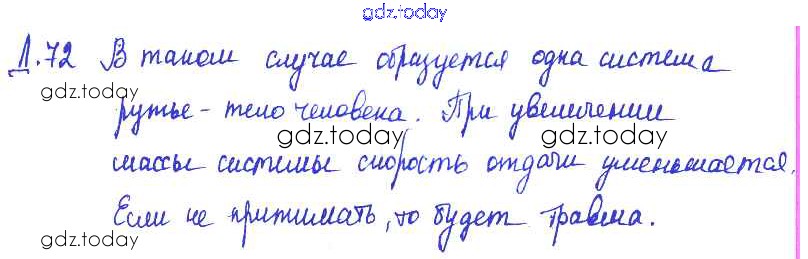 gdz.today
Д.72 В таком случае образуется одна система
gdz.today
ружье - тело человека. При увеличении
gdz.today
массы системы скорость отдачи уменьшается.
Если не прижимать, то будет травма.
gdz.today